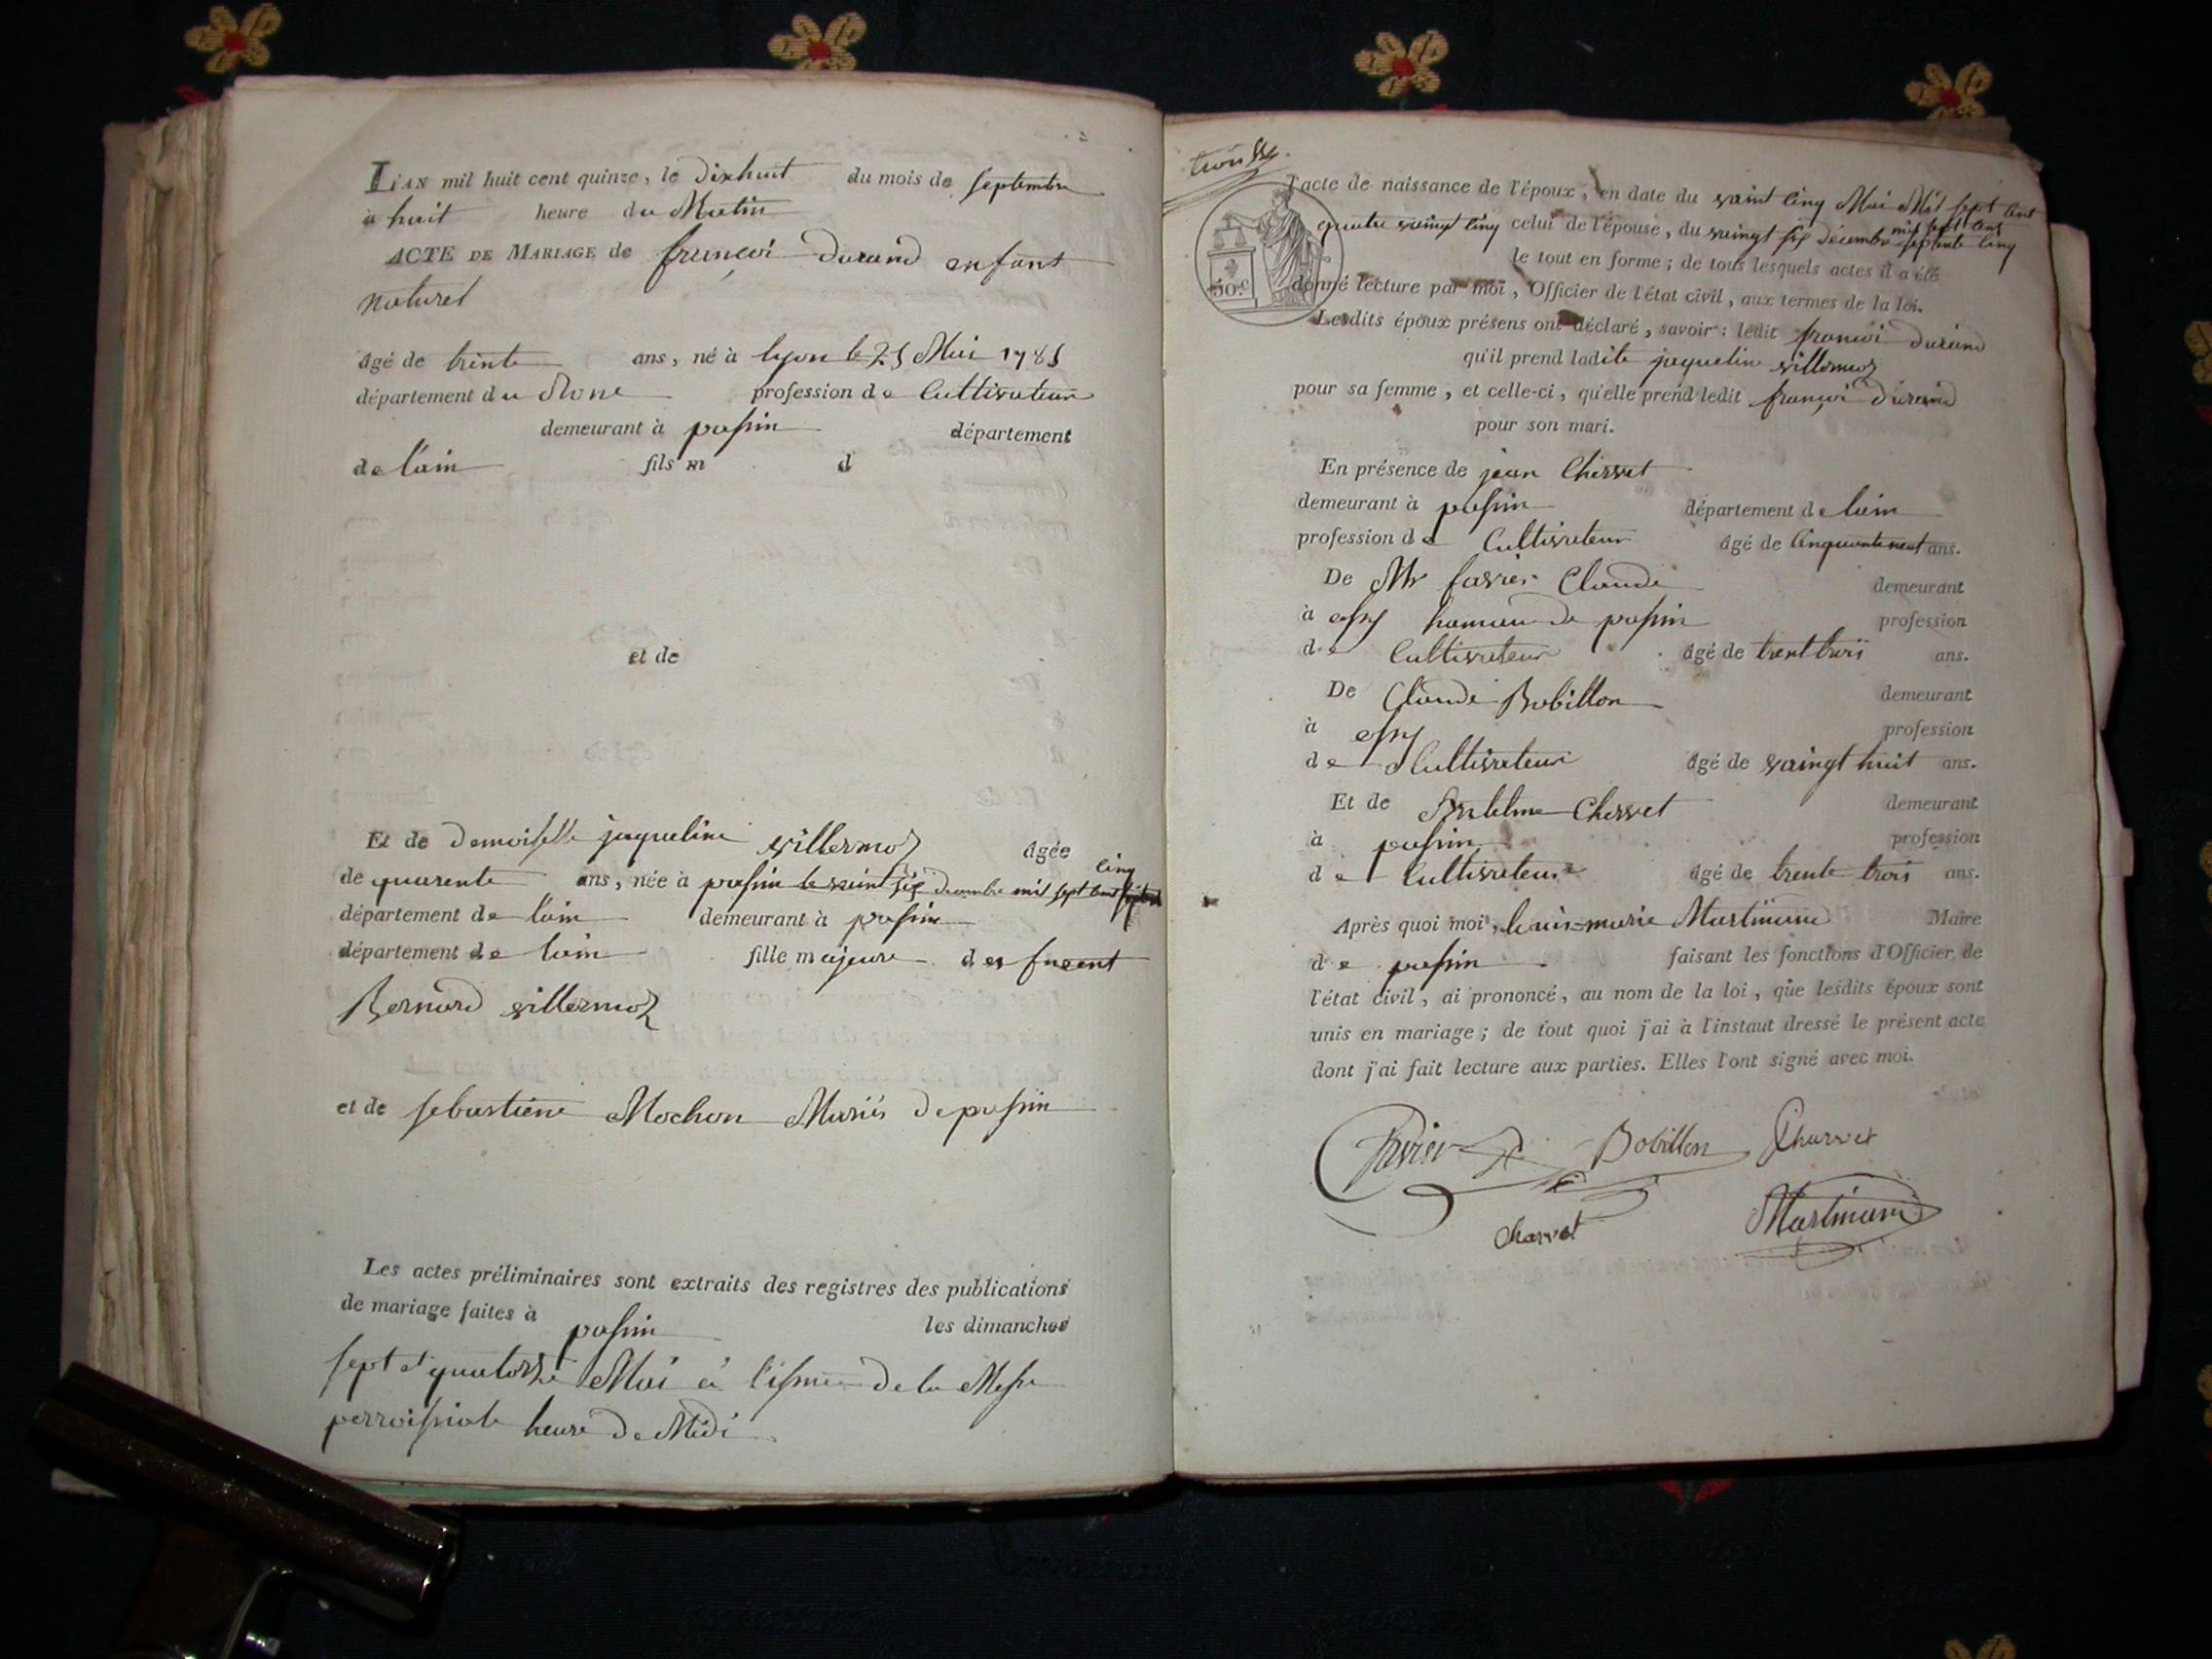 L'AN mil huit cent quinze, le dixhuit du mois de septembre
à huit heure du Matin
ACTE DE MARIAGE de françoi durand enfant
naturel
âgé de trente ans, né à lyon le 25 Mai 1785
département du Rone profession de Cultivateur
demeurant à passin département
de l'ain fils m d
et de
Et de demoiselle jaqueline villermoz agée
de quarente ans, née à passin le vaint six decembre mil sept cent septente cinq
département de l'ain demeurant à passin
département de l'ain fille majeure des fueent
Bernard villermoz
et de sebastiene Mochon Mariés de passin
Les actes préliminaires sont extraits des registres des publications
de mariage faites à passin les dimanches
sept et quatorze Mai à l'issue de la Messe
perroissiale heure de Midi
l'acte de naissance de l'époux, en date du vaint cinq Mai Mil sept cent
quatre vaingt cinq celui de l'épouse, du vaingt six décembre mil sept cent septente cinq
50.c
le tout en forme; de tous lesquels actes il a été
donné lecture par moi, Officier de l'état civil, aux termes de la loi.
Lesdits époux présens ont déclaré, savoir: ledit françoi durand
qu'il prend ladite jaqueline villermoz
pour sa femme, et celle-ci, qu'elle prend ledit françoi durand
pour son mari.
En présence de jean Chervet
demeurant à passin département de lain
profession de Cultivateur âgé de Cinquante neuf ans.
De Mr favrier Claude demeurant
à assy hameau de passin profession
de Cultivateur âgé de trent trois ans.
De Claude Bobillon demeurant
à assy profession
de Cultivateur âgé de vaingt huit ans.
Et de Antelme Chervet demeurant
à passin profession
de Cultivateur âgé de trente trois ans.
Après quoi moi, louis-marie Martinand Maire
de passin faisant les fonctions d'Officier de
l'état civil, ai prononcé, au nom de la loi, que lesdits époux sont
unis en mariage; de tout quoi j'ai à l'instant dressé le présent acte
dont j'ai fait lecture aux parties. Elles l'ont signé avec moi.
Bobillon Charvet
Charvet Martinand